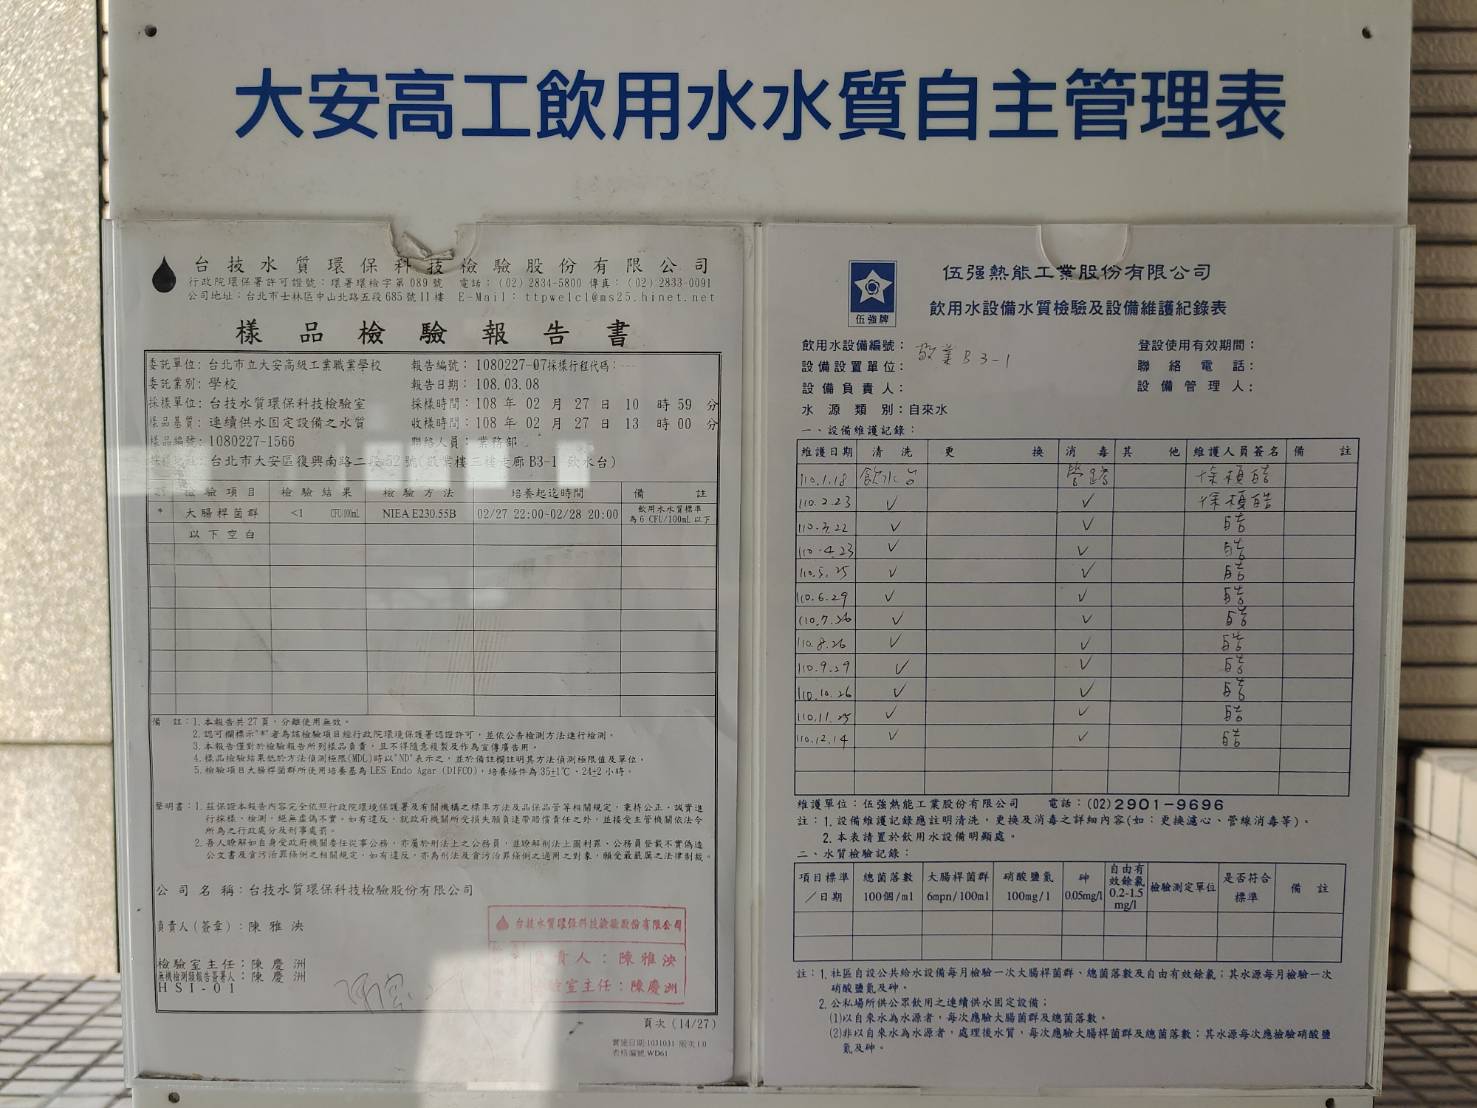 大安高工飲用水水質自主管理表
台技水質環保科技檢驗股份有限公司
行政院環保署許可證號:環署環檢字第089號 電話:(02)2834-5800 傳真:(02)2833-0091
公司地址:台北市士林區中山北路五段685號11樓 E-Mail:ttpwelcl@ms25.hinet.net
樣品檢驗報告書
委託單位:台北市立大安高級工業職業學校 報告編號:1080227-07採樣行程代碼:---
委託業別:學校 報告日期:108.03.08
採樣單位:台技水質環保科技檢驗室 採樣時間:108年02月27日10時59分
樣品基質:連續供水固定設備之水質 收樣時間:108年02月27日13時00分
樣品編號:1080227-1566 聯絡人員:業務部
台北市大安區復興南路二段52號(敬業樓三樓走廊B3-1飲水台)
檢驗項目 檢驗結果 檢驗方法 培養起迄時間 備註
* 大腸桿菌群 <1 CFU/100mL NIEA E230.55B 02/27 22:00-02/28 20:00 飲用水水質標準為6 CFU/100mL以下
以下空白
備註:1.本報告共27頁,分離使用無效。
2.認可欄標示"*"者為該檢驗項目經行政院環境保護署認證許可,並依公告檢測方法進行檢測。
3.本報告僅對於檢驗報告所列樣品負責,且不得隨意複製及作為宣傳廣告用。
4.樣品檢驗結果低於方法偵測極限(MDL)時以"ND"表示之,並於備註欄註明其方法偵測極限值及單位。
5.檢驗項目大腸桿菌群所使用培養基為LES Endo Agar (DIFCO),培養條件為35±1℃、24±2小時。
聲明書:1.茲保證本報告內容完全依照行政院環境保護署及有關機構之標準方法及品保品管等相關規定,秉持公正、誠實進
行採樣、檢測,絕無虛偽不實。如有違反,就政府機關所受損失願負連帶賠償責任之外,並接受主管機關依法令
所為之行政處分及刑事處罰。
2.吾人瞭解如自身受政府機關委任從事公務,亦屬於刑法上之公務員,並瞭解刑法上圖利罪、公務員登載不實偽造
公文書及貪污治罪條例之相關規定,如有違反,亦為刑法及貪污治罪條例之適用之對象,願受最嚴厲之法律制裁。
公司名稱:台技水質環保科技檢驗股份有限公司
負責人(簽章):陳雅泱
檢驗室主任:陳慶洲
無機檢測類報告簽署人:陳慶洲
HSI-01
台技水質環保科技檢驗股份有限公司
負責人:陳雅泱
檢驗室主任:陳慶洲
頁次(14/27)
實施日期:1031031 版次1.0
表格編號 WD61
伍強牌
伍强熱能工業股份有限公司
飲用水設備水質檢驗及設備維護紀錄表
飲用水設備編號: 敬業B3-1 登設使用有效期間:
設備設置單位: 聯絡電話:
設備負責人: 設備管理人:
水源類別:自來水
一、設備維護記錄:
維護日期 清洗 更換 消毒 其他 維護人員簽名 備註
110.1.18 飲水台 管路
110.2.23 ✓ ✓
110.3.22 ✓ ✓
110.4.23 ✓ ✓
110.5.25 ✓ ✓
110.6.29 ✓ ✓
110.7.26 ✓ ✓
110.8.26 ✓ ✓
110.9.29 ✓ ✓
110.10.26 ✓ ✓
110.11.25 ✓ ✓
110.12.14 ✓ ✓
維護單位:伍強熱能工業股份有限公司 電話:(02)2901-9696
註:1.設備維護記錄應註明清洗、更換及消毒之詳細內容(如:更換濾心、管線消毒等)。
2.本表請置於飲用水設備明顯處。
二、水質檢驗記錄:
項目標準/日期 總菌落數100個/ml 大腸桿菌群6mpn/100ml 硝酸鹽氮100mg/l 砷0.05mg/l 自由有效餘氯0.2-1.5mg/l 檢驗測定單位 是否符合標準 備註
註:1.社區自設公共給水設備每月檢驗一次大腸桿菌群、總菌落數及自由有效餘氯;其水源每月檢驗一次
硝酸鹽氮及砷。
2.公私場所供公眾飲用之連續供水固定設備:
(1)以自來水為水源者,每次應驗大腸菌群及總菌落數。
(2)非以自來水為水源者,處理後水質,每次應驗大腸桿菌群及總菌落數;其水源每次應檢驗硝酸鹽
氮及砷。